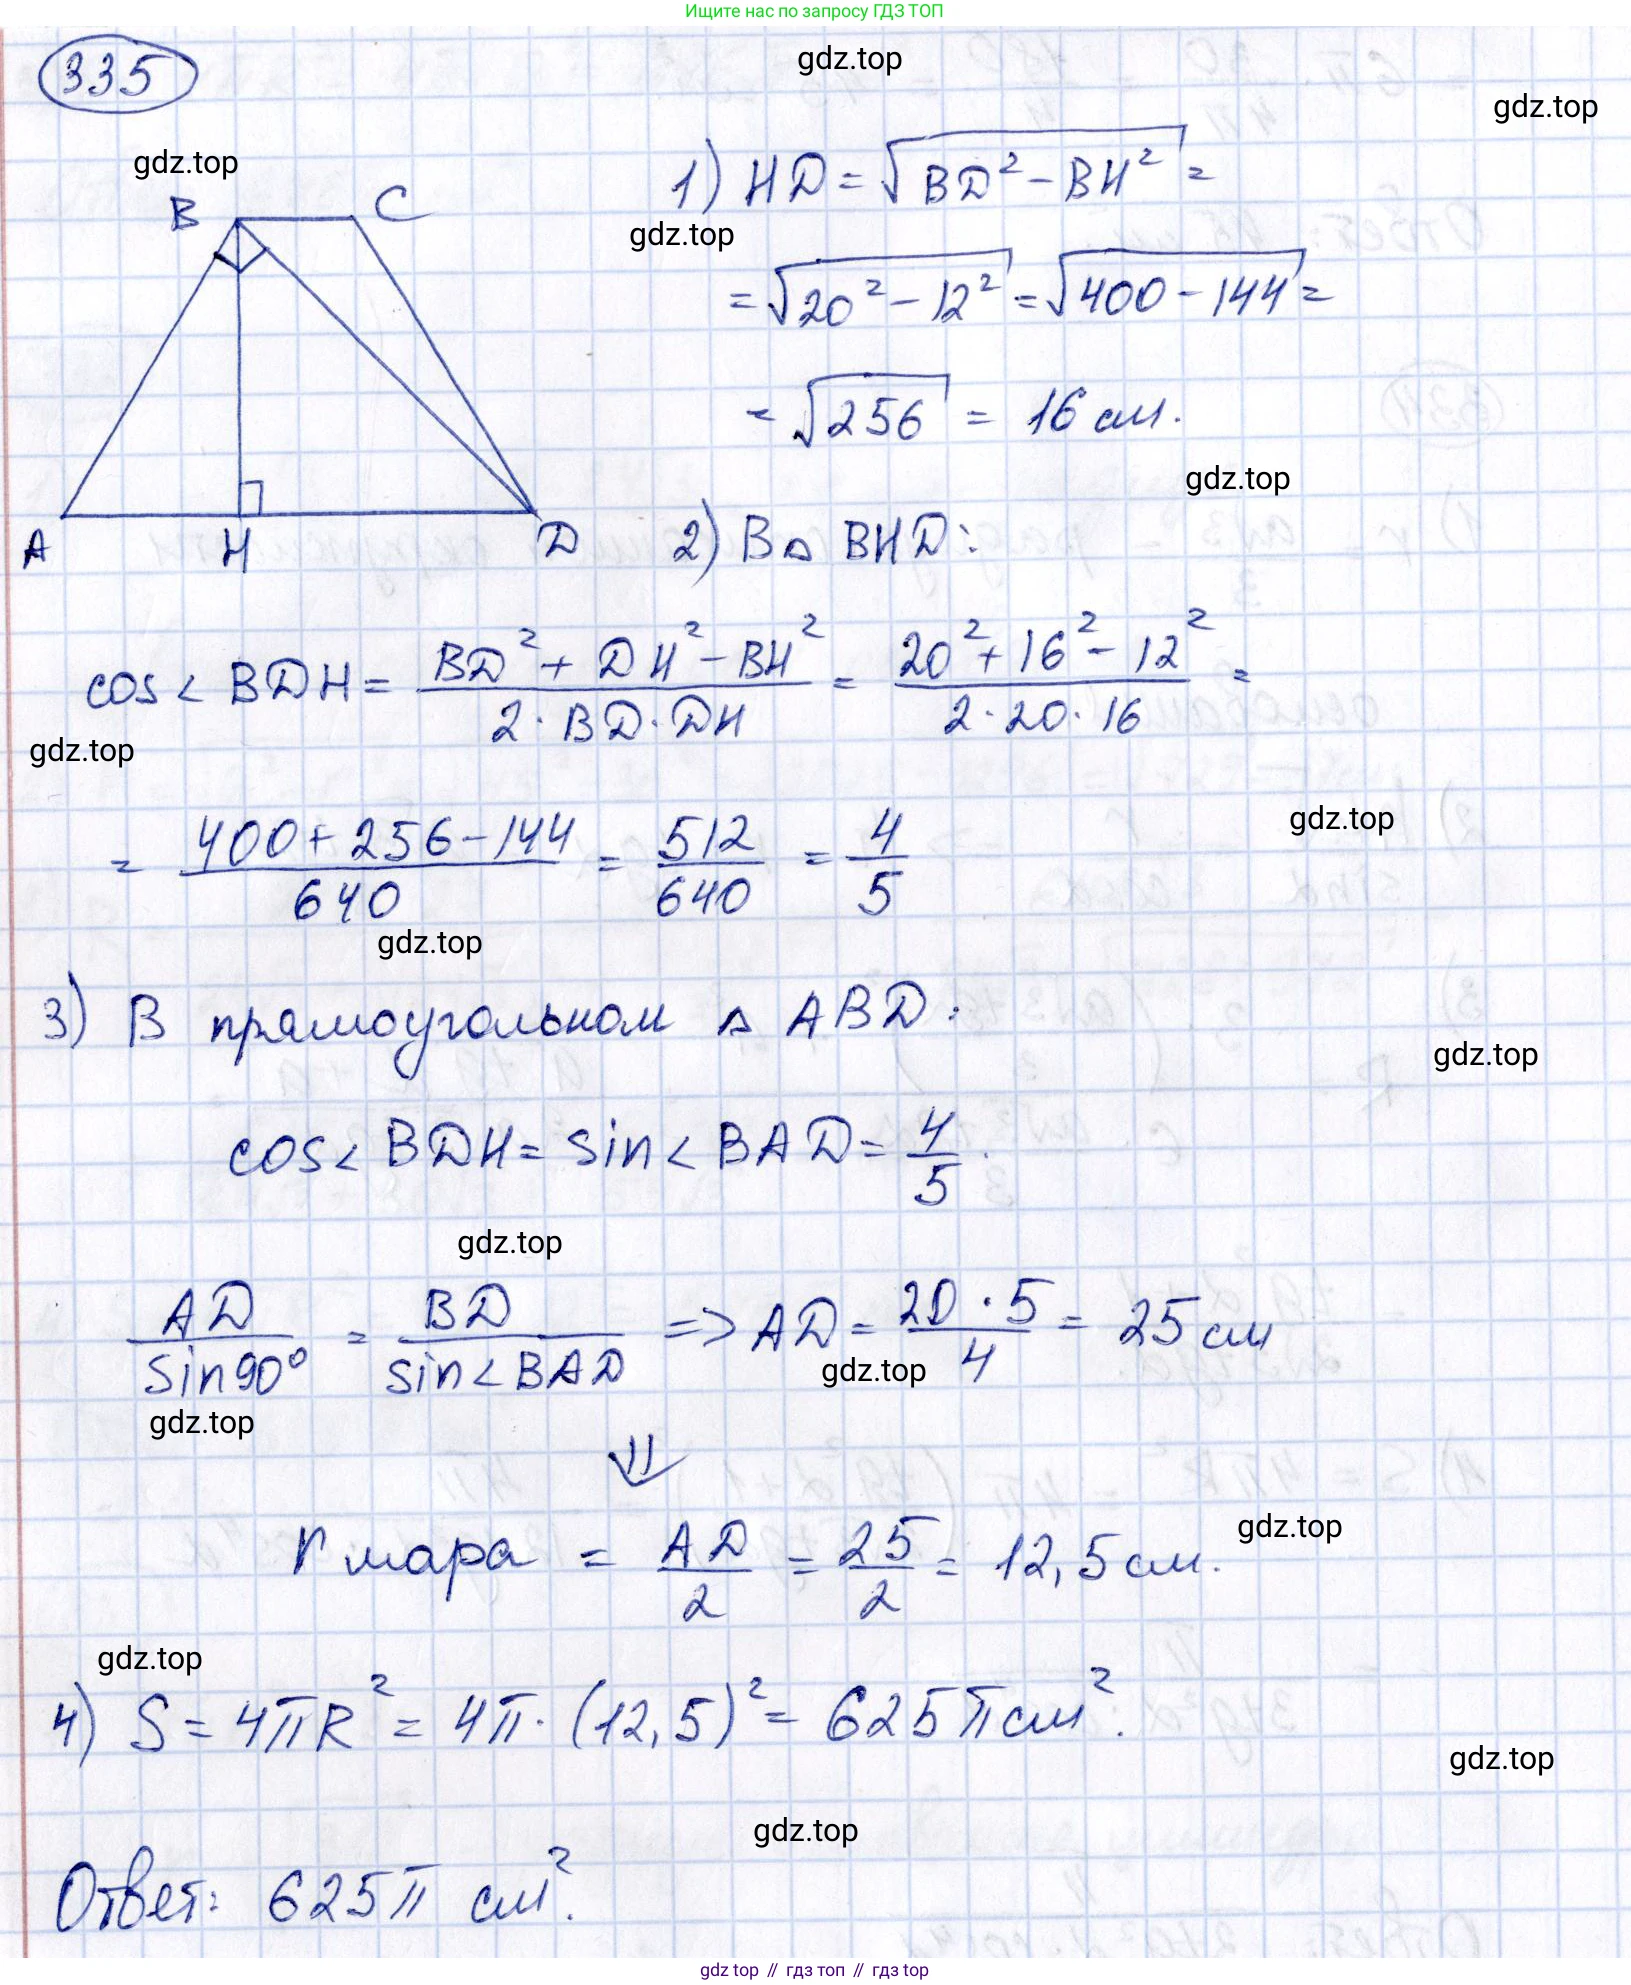 Ищите нас по запросу ГДЗ ТОП
335
gdz.top
gdz.top
gdz.top
B C
1) HD = √BD² - BH² =
gdz.top
= √20² - 12² = √400 - 144 =
= √256 = 16 см.
gdz.top
A H D
2) В △ BHD:
cos < BDH = BD² + DH² - BH² / 2 · BD · DH = 20² + 16² - 12² / 2 · 20 · 16 =
gdz.top
gdz.top
= 400 + 256 - 144 / 640 = 512 / 640 = 4 / 5
gdz.top
3) В прямоугольном △ ABD:
gdz.top
cos < BDH = sin < BAD = 4 / 5.
gdz.top
AD / sin 90° = BD / sin < BAD => AD = 20 · 5 / 4 = 25 см
gdz.top
gdz.top
⇓
r шара = AD / 2 = 25 / 2 = 12,5 см.
gdz.top
gdz.top
4) S = 4πR² = 4π · (12,5)² = 625π см².
gdz.top
gdz.top
Ответ: 625π см².
gdz top // гдз топ // гдз top